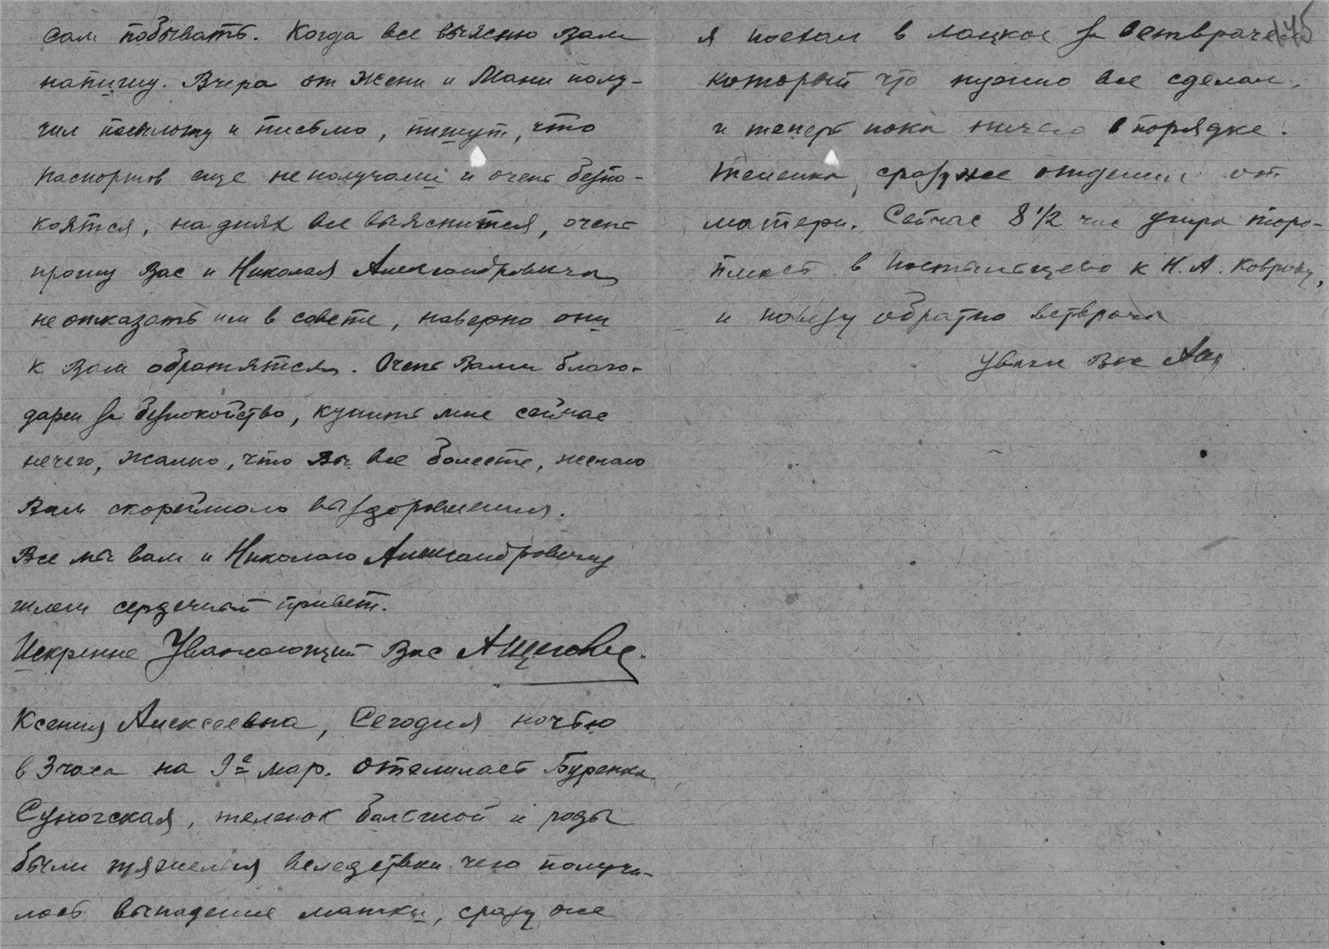 сам побывать. Когда все выясню Вам
напишу. Вчера от Жени и Мани полу-
чил посылочку и письмо, пишут, что
паспортов еще не получали и очень безпо-
коятся, на днях все выяснится, очень
прошу Вас и Николая Александровича
не отказать им в совете, наверно они
к Вам обратятся. Очень Вами благо-
дарен за безпокойство, купить мне сейчас
нечего, жалко, что Вы все болеете, желаю
Вам скорейшего выздоровления.
Все мы вам и Николаю Александровичу
шлем сердечный привет.
Искренне Уважающий Вас АЩеголев.
Ксения Алексеевна, Сегодня ночью
в 3 часа на 9е мар. отелилась Буренка
Суногская, теленок большой и роды
были тяжелыя вследствии чего получи-
лось выпадение матки, сразу же
145
я поехал в Лацкое за ветврачем
который что нужно все сделал,
и теперь пока ничего в порядке.
Теленка, сразу же отделили от
матери. Сейчас 8 1/2 час утра тороп-
люсь в к Н. А. Коврову,
и повезу обратно ветврача
Уваж Вас АЩ